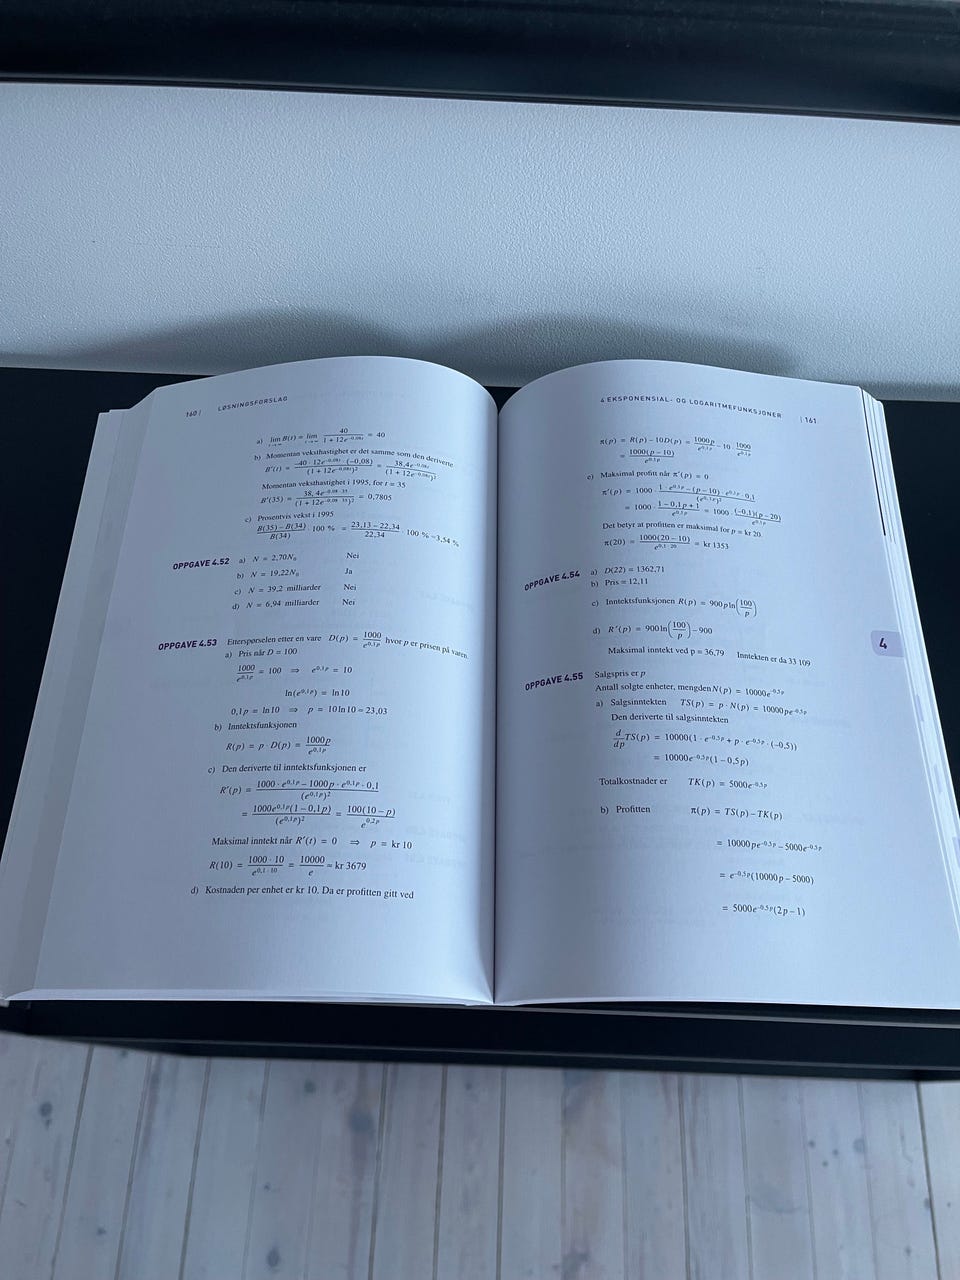 160 | LØSNINGSFORSLAG
a) lim B(t) = lim 40 / (1 + 12e^(−0,08t)) = 40
b) Momentan veksthastighet er det samme som den deriverte
B'(t) = −40 · 12e^(−0,08t) · (−0,08) / (1 + 12e^(−0,08t))² = 38,4e^(−0,08t) / (1 + 12e^(−0,08t))²
Momentan veksthastighet i 1995, for t = 35
B'(35) = 38, 4e^(−0,08 · 35) / (1 + 12e^(−0,08 · 35))² = 0,7805
c) Prosentvis vekst i 1995
(B(35) − B(34)) / B(34) · 100 % = (23,13 − 22,34) / 22,34 · 100 % = 3,54 %
OPPGAVE 4.52 a) N = 2,70N₀ Nei
b) N = 19,22N₀ Ja
c) N = 39,2 milliarder Nei
d) N = 6,94 milliarder Nei
OPPGAVE 4.53 Etterspørselen etter en vare D(p) = 1000 / e^(0,1p) hvor p er prisen på varen.
a) Pris når D = 100
1000 / e^(0,1p) = 100 ⇒ e^(0,1p) = 10
ln(e^(0,1p)) = ln 10
0,1p = ln 10 ⇒ p = 10 ln 10 = 23,03
b) Inntektsfunksjonen
R(p) = p · D(p) = 1000p / e^(0,1p)
c) Den deriverte til inntektsfunksjonen er
R'(p) = (1000 · e^(0,1p) − 1000p · e^(0,1p) · 0,1) / (e^(0,1p))²
= 1000e^(0,1p)(1 − 0,1p) / (e^(0,1p))² = 100(10 − p) / e^(0,2p)
Maksimal inntekt når R'(t) = 0 ⇒ p = kr 10
R(10) = 1000 · 10 / e^(0,1 · 10) = 10000 / e ≈ kr 3679
d) Kostnaden per enhet er kr 10. Da er profitten gitt ved
4 EKSPONENSIAL- OG LOGARITMEFUNKSJONER | 161
π(p) = R(p) − 10D(p) = 1000p / e^(0,1p) − 10 · 1000 / e^(0,1p)
= 1000(p − 10) / e^(0,1p)
e) Maksimal profitt når π'(p) = 0
π'(p) = 1000 · (1 · e^(0,1p) − (p − 10) · e^(0,1p) · 0,1) / (e^(0,1p))²
= 1000 · (1 − 0,1p + 1) / e^(0,1p) = 1000 · (−0,1)(p − 20) / e^(0,1p)
Det betyr at profitten er maksimal for p = kr 20.
π(20) = 1000(20 − 10) / e^(0,1 · 20) = kr 1353
OPPGAVE 4.54 a) D(22) = 1362,71
b) Pris = 12,11
c) Inntektsfunksjonen R(p) = 900p ln(100 / p)
d) R'(p) = 900 ln(100 / p) − 900
Maksimal inntekt ved p = 36,79 Inntekten er da 33 109
OPPGAVE 4.55 Salgspris er p
Antall solgte enheter, mengden N(p) = 10000e^(−0,5p)
a) Salgsinntekten TS(p) = p · N(p) = 10000pe^(−0,5p)
Den deriverte til salgsinntekten
d/dp TS(p) = 10000(1 · e^(−0,5p) + p · e^(−0,5p) · (−0,5))
= 10000e^(−0,5p)(1 − 0,5p)
Totalkostnader er TK(p) = 5000e^(−0,5p)
b) Profitten π(p) = TS(p) − TK(p)
= 10000pe^(−0,5p) − 5000e^(−0,5p)
= e^(−0,5p)(10000p − 5000)
= 5000e^(−0,5p)(2p − 1)
4